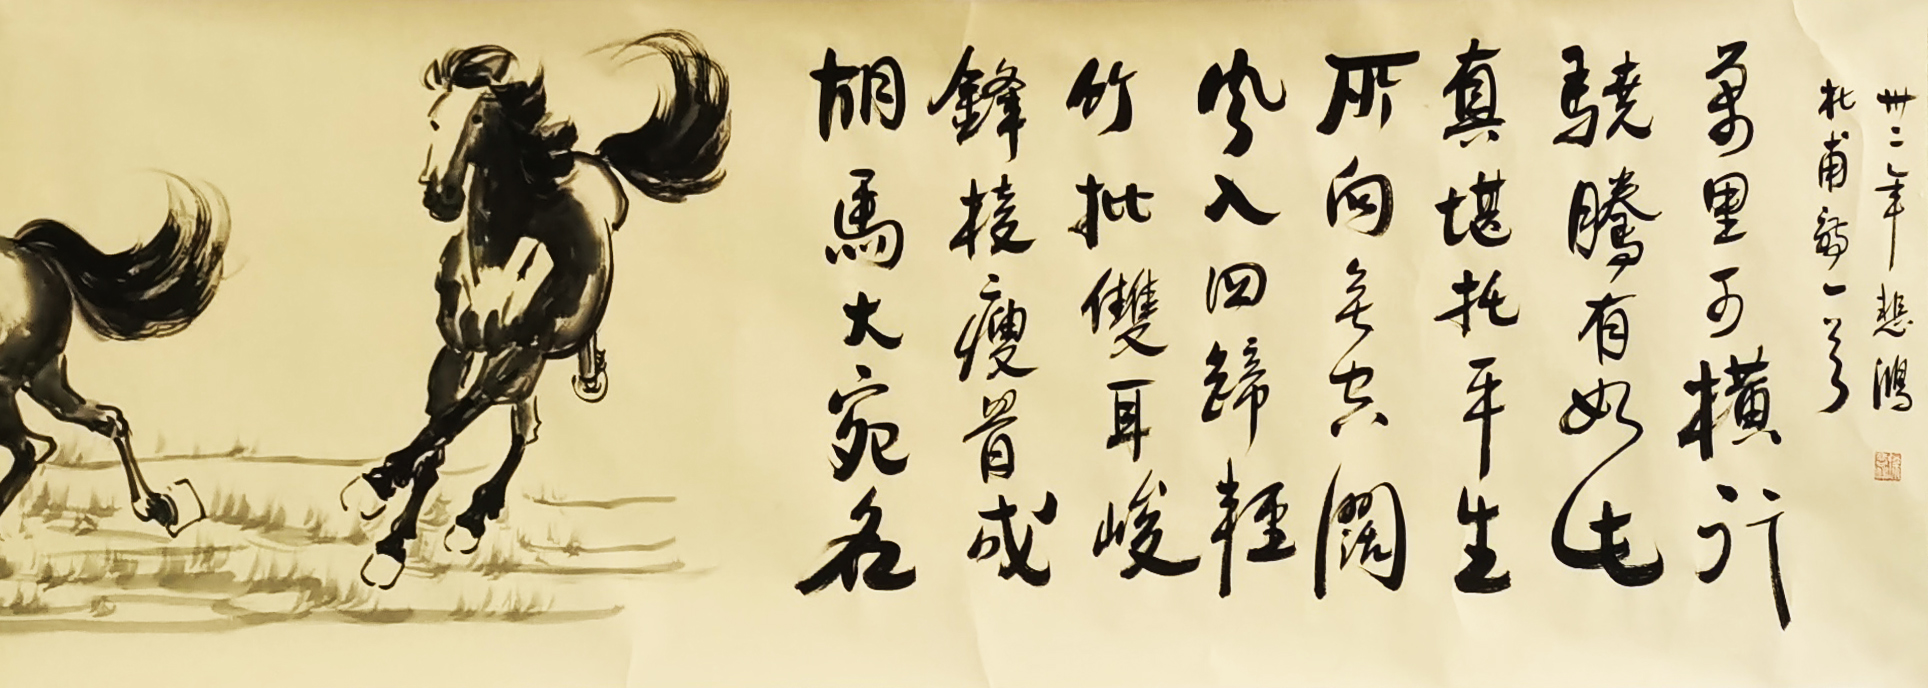 胡馬大宛名
鋒棱瘦骨成
竹批雙耳峻
風入四蹄輕
所向無空闊
真堪托平生
驍騰有如此
萬里可橫行
杜甫詩一首
卅二年悲鴻